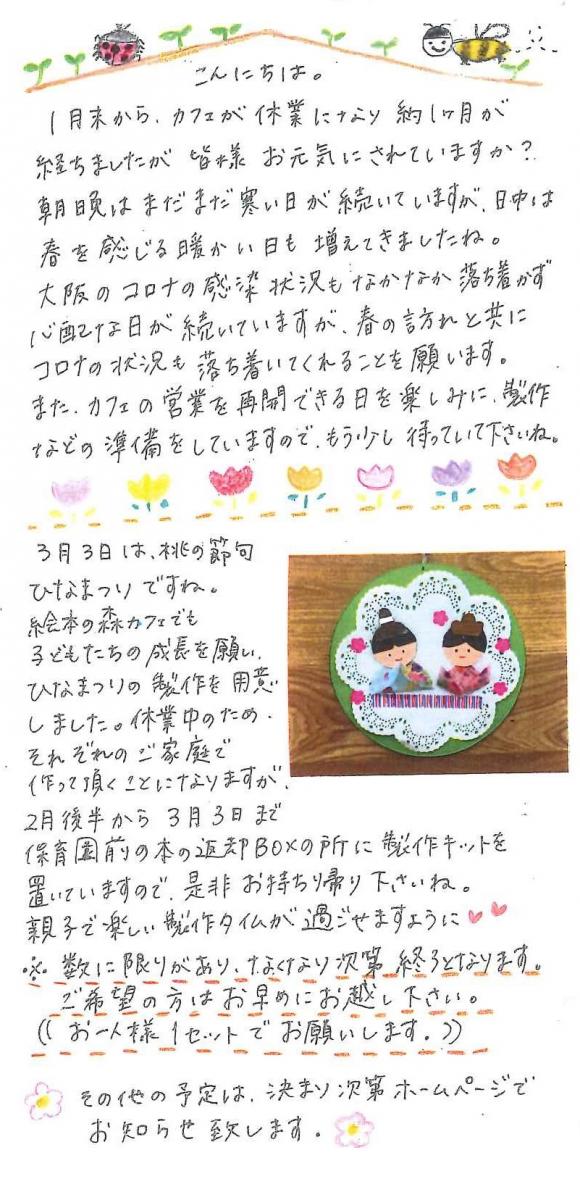 こんにちは。
1月末から、カフェが休業になり約1ヶ月が
経ちましたが皆様お元気にされていますか?
朝晩はまだまだ寒い日が続いていますが、日中は
春を感じる暖かい日も増えてきましたね。
大阪のコロナの感染状況もなかなか落ち着かず
心配な日が続いていますが、春の訪れと共に
コロナの状況も落ち着いてくれることを願います。
また、カフェの営業を再開できる日を楽しみに、製作
などの準備をしていますので、もう少し待っていて下さいね。
3月3日は、桃の節句
ひなまつりですね。
絵本の森カフェでも
子どもたちの成長を願い、
ひなまつりの製作を用意
しました。休業中のため、
それぞれのご家庭で
作って頂くことになりますが、
2月後半から3月3日まで
保育園前の本の返却BOXの所に製作キットを
置いていますので、是非お持ち帰り下さいね。
親子で楽しい製作タイムが過ごせますように
※数に限りがあり、なくなり次第終了となります。
ご希望の方はお早めにお越し下さい。
((お一人様1セットでお願いします。))
その他の予定は、決まり次第ホームページで
お知らせ致します。